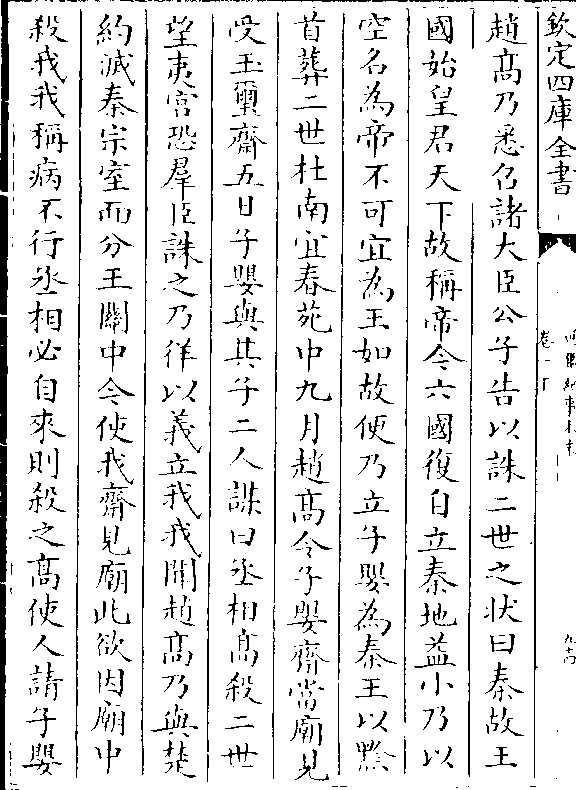 欽定四庫全書
卷一下
趙髙乃悉召諸大臣公子告以誅二世之状曰秦故王
國始皇君天下故稱帝今六國復自立秦地益小乃以
空名為帝不可宜為王如故便乃立子嬰為秦王以黔
首葬二世杜南宜春苑中九月趙髙令子嬰齊當廟見
受玉璽齋五日子嬰與其子二人謀曰丞相髙殺二世
望夷宫恐羣臣誅之乃徉以義立我我聞趙髙乃與楚
約滅秦宗室而分王關中今使我齋見廟此欲因廟中
殺我我稱病不行丞相必自來則殺之髙使人請子嬰